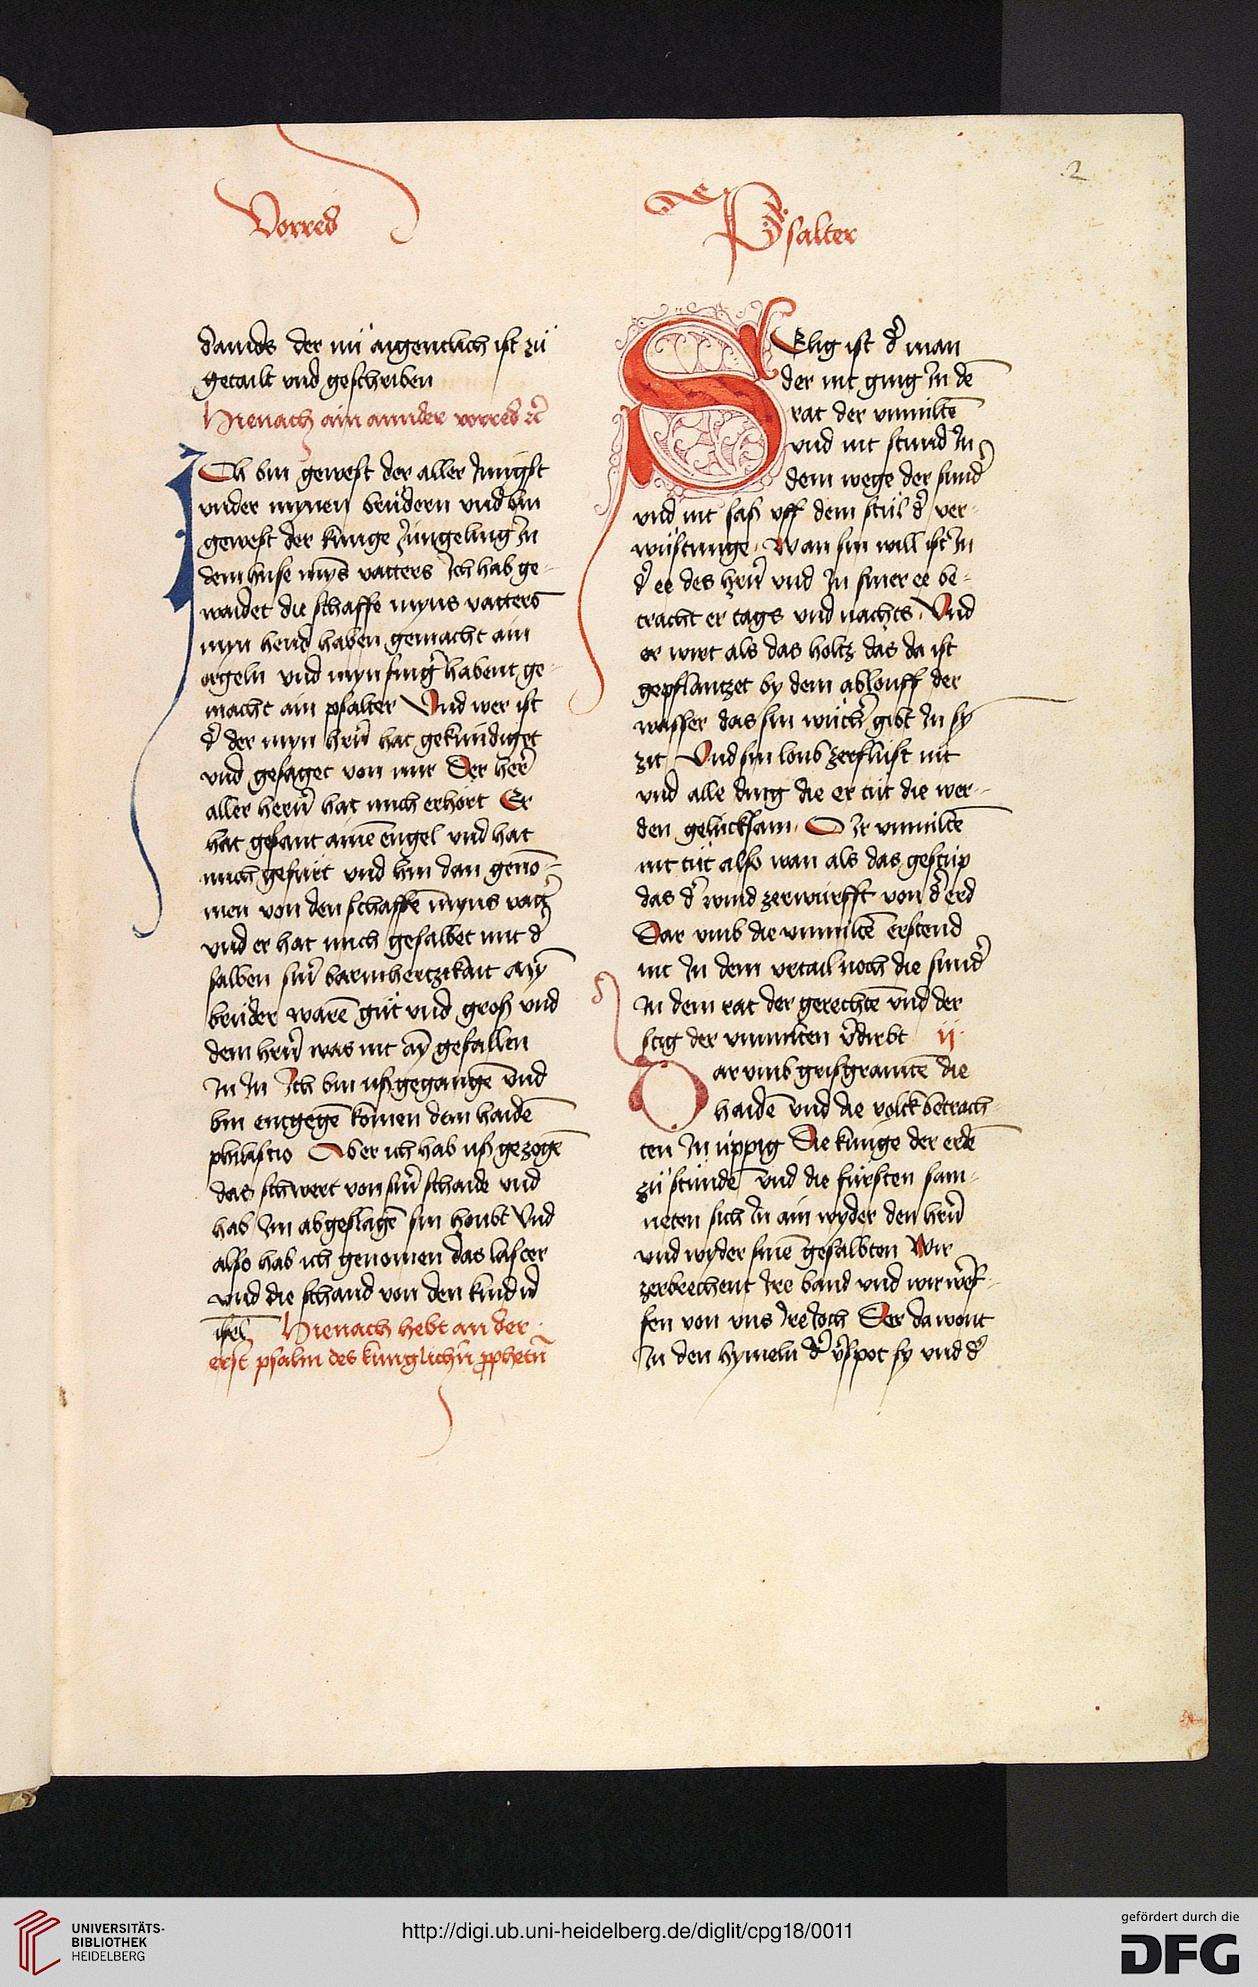 2
Vorred
Psalter
dauids der nü aigentlich ist zü
getailt vnd geschriben
Hienach ain annder vorred ꝛc̄
ICh bin gewest der aller Jungst
vnder mynen brüdern vnd bin
gewest der künge Jüngeling In
dem huse myns̄ vatters Ich hab ge-
waidet die schaffe myns vatters
myn hend haben gemacht ain
orgeln vnd myn fing͛ habent ge-
macht ain psalter Vnd wer ist
d͛ der myn herñ hat gekündiget
vnd gesaget von mir Der her͛
aller herrñ hat mich erhört Er
hat gesant ainē engel vnd hat
mich gefürt vnd hin dan genō-
men von den schaffē myns vatt͛
vnd er hat mich gesalbet mit d͛
salben sin͛ barmhertzikait Myn̄
brüder warē güt vnd groß vnd
dem herñ was nit ain̄ gefallen
In In Ich bin ußgegangē vnd
bin entgegē komen dem haidē
philistio Aber ich hab uß gezogē
das schwert von sin͛ schaide vnd
hab Im abgeslagē sin houbt Vnd
also hab ich genomen das laster
vnd die schand von den kind͛n
isr̄l Hienach hebt an der
erst psalm des künglichñ ꝓphetñ
SElig ist d͛ man
der nit ging In dē
rat der vnmiltē
vnd nit stund In
dem wege der sünd͛
vnd nit saß vff dem stül d͛ ver-
wüstunge. Wan sin will ist In
d͛ ee des herñ vnd In siner ee be-
tracht er tags vnd nachts. Vnd
er wirt als das holtz das da ist
gepflantzet by dem ablouff der
wasser das sin wüch͛ gibt In sy͛
zit Vnd sin loub zerflüst nit
vnd alle ding die er tüt die wer-
den gelücksam. O Ir vnmiltē
nit tüt also wan als das gestüp
das d͛ wind zerwürfft von d͛ erd
Dar vmb die vnmiltē erstend
nit In dem vrtail noch die sünd͛
In dem rat der gerechtē vnd der
stig der vnmilten v͛dirbt ij
Dar vmb grisgramtē die
haidē vnd die volck betrach-
ten In üppig Die künge der erdē
zü stündē vnd die fürsten sam-
neten sich In ain wyder den herñ
vnd wyder sinē gesalbten Wir
zerbrechent Ire band vnd wir w͛f-
fen von vns Ire Joch Der da wont
In den hymeln d͛ v͛spot sy vnd d͛
UNIVERSITÄTS-
BIBLIOTHEK
HEIDELBERG
http://digi.ub.uni-heidelberg.de/diglit/cpg18/0011
gefördert durch die
DFG